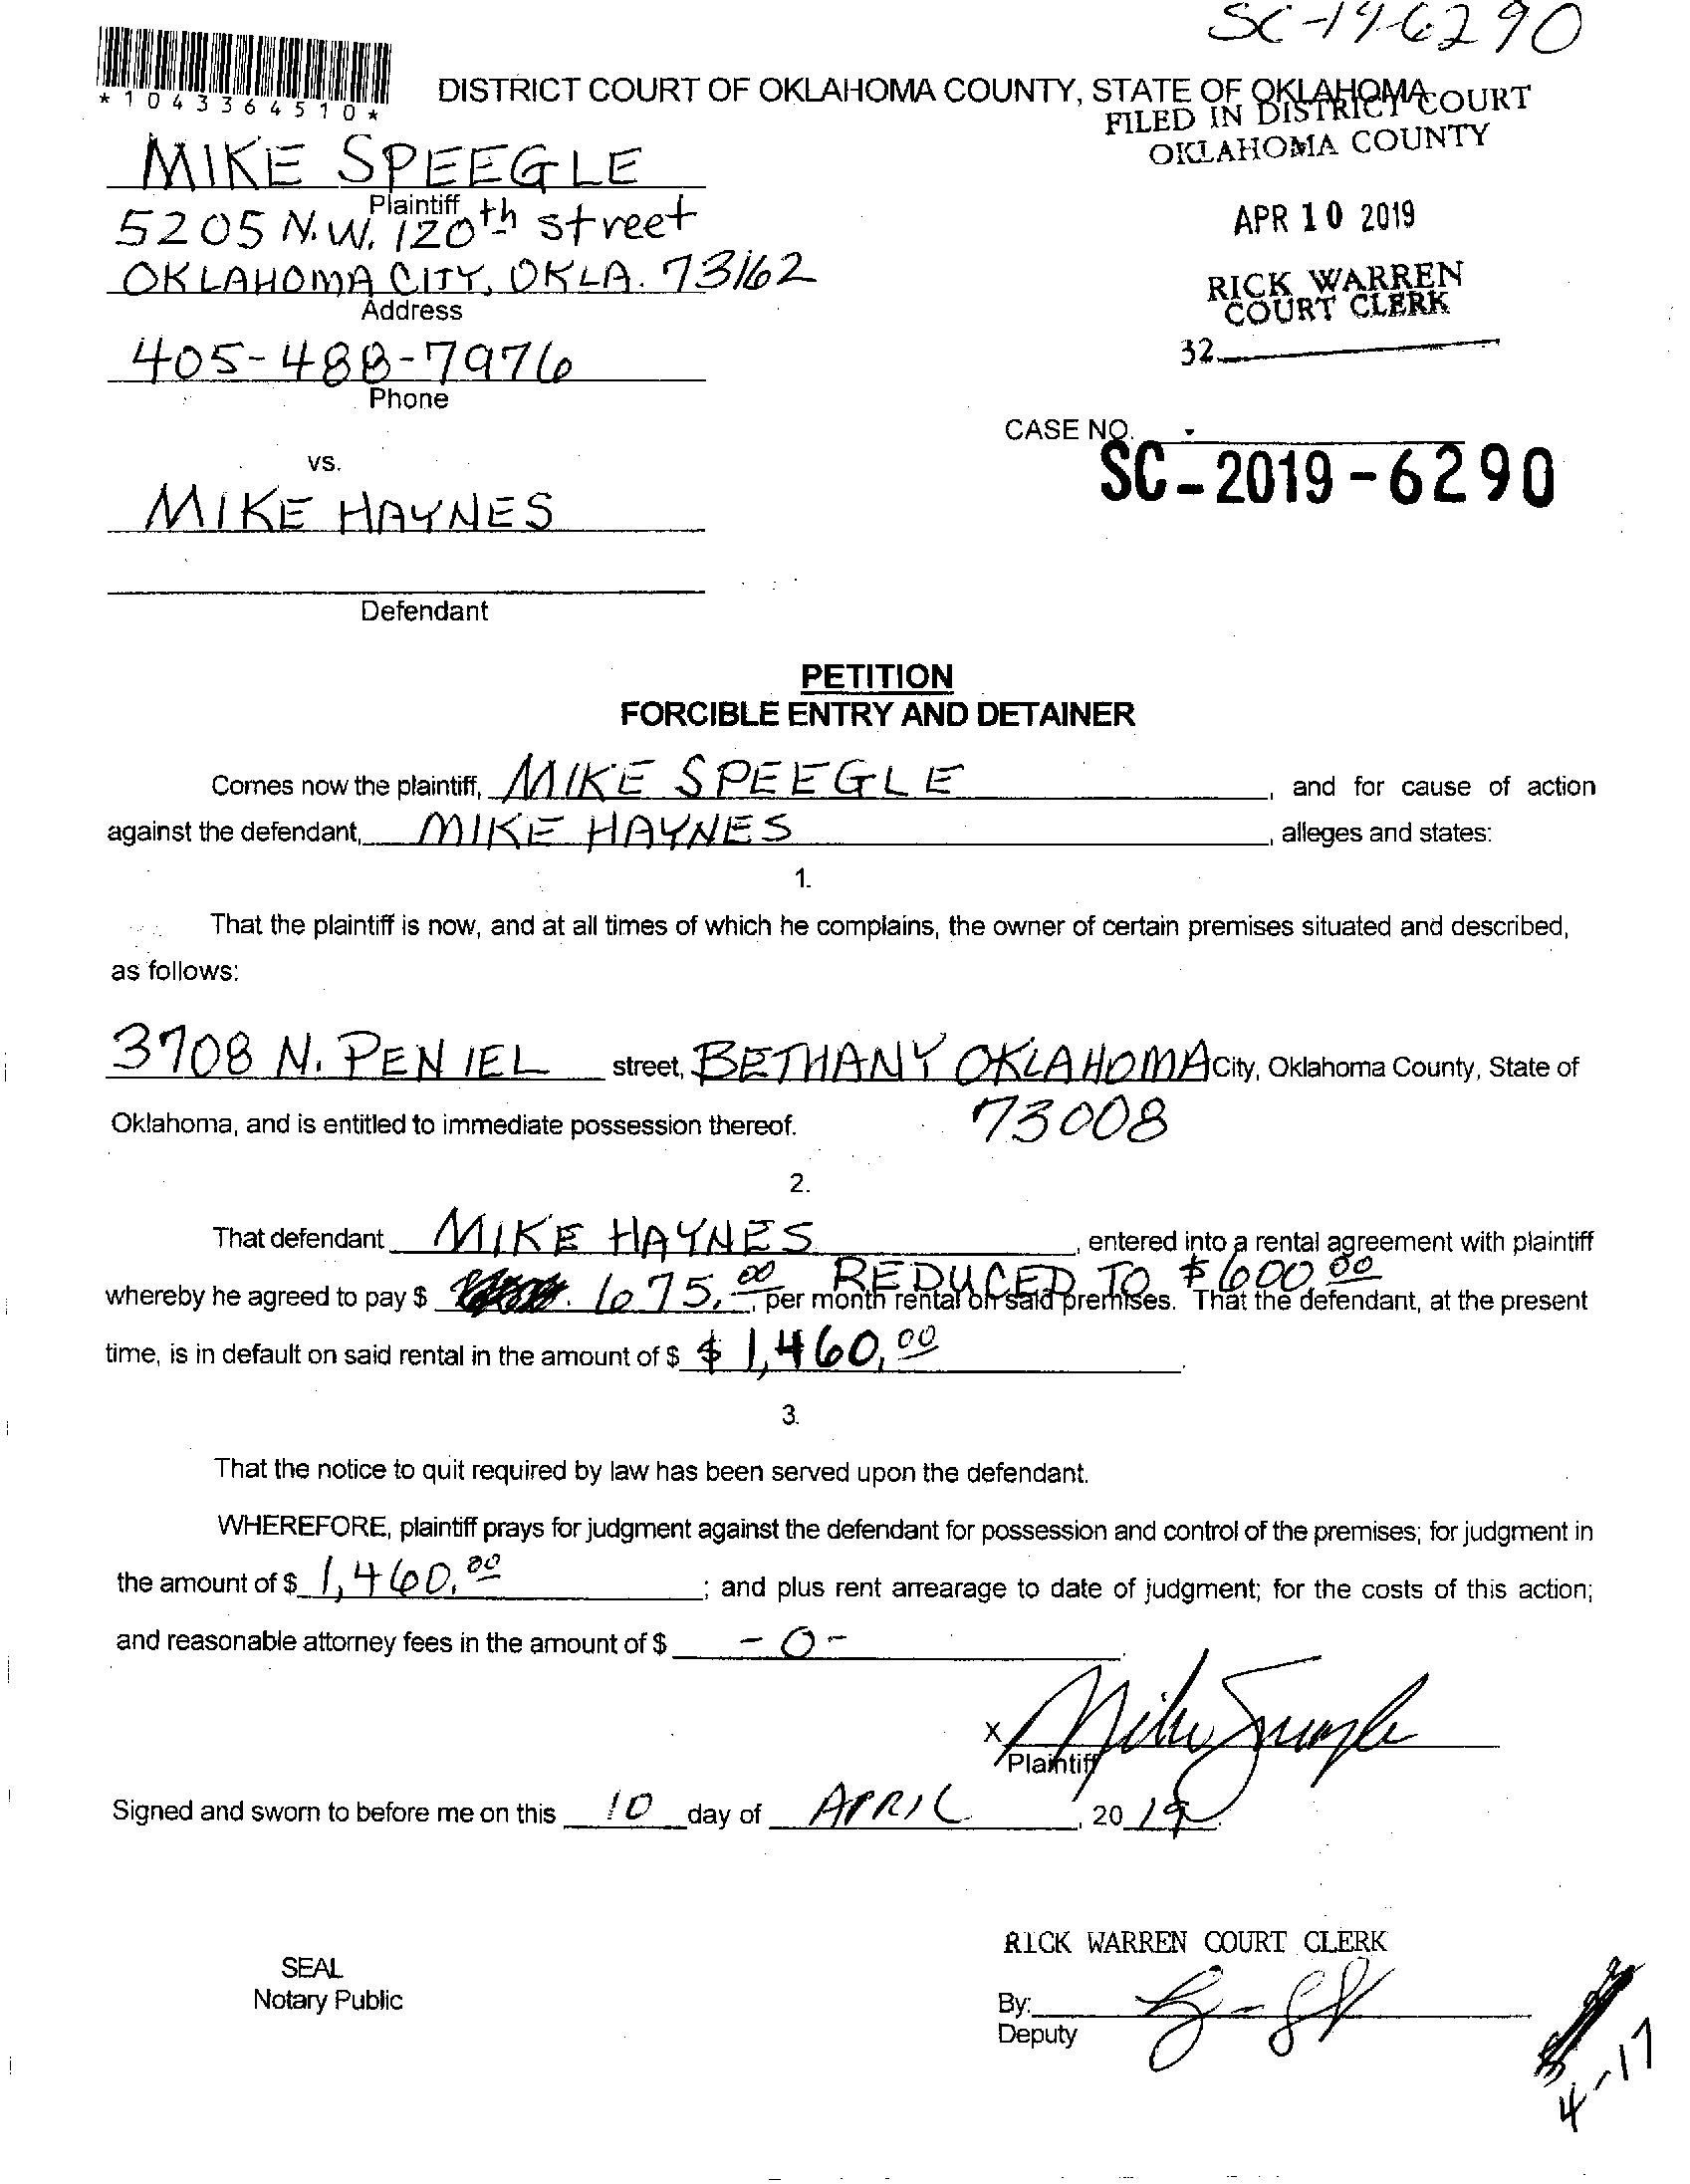 SC-19-6290
*1043364510*
DISTRICT COURT OF OKLAHOMA COUNTY, STATE OF OKLAHOMA
FILED IN DISTRICT COURT
OKLAHOMA COUNTY
MIKE SPEEGLE
Plaintiff
5205 N.W. 120th street
APR 10 2019
OKLAHOMA CITY, OKLA. 73162
Address
RICK WARREN
COURT CLERK
405-488-7976
Phone
32
CASE NO.
SC-2019-6290
vs.
MIKE HAYNES
Defendant
PETITION
FORCIBLE ENTRY AND DETAINER
Comes now the plaintiff, MIKE SPEEGLE, and for cause of action
against the defendant, MIKE HAYNES, alleges and states:
1.
That the plaintiff is now, and at all times of which he complains, the owner of certain premises situated and described,
as follows:
3708 N. PENIEL street, BETHANY OKLAHOMA City, Oklahoma County, State of
73008
Oklahoma, and is entitled to immediate possession thereof.
2.
That defendant MIKE HAYNES, entered into a rental agreement with plaintiff
REDUCED TO $600.00
whereby he agreed to pay $ 675.00, per month rental on said premises. That the defendant, at the present
time, is in default on said rental in the amount of $ $1,460.00.
3.
That the notice to quit required by law has been served upon the defendant.
WHEREFORE, plaintiff prays for judgment against the defendant for possession and control of the premises; for judgment in
the amount of $ 1,460.00; and plus rent arrearage to date of judgment; for the costs of this action;
and reasonable attorney fees in the amount of $ -0-.
X Mike Speegle
Plaintiff
Signed and sworn to before me on this 10 day of APRIL, 2019.
RICK WARREN COURT CLERK
SEAL
Notary Public
By:
Deputy
4-17